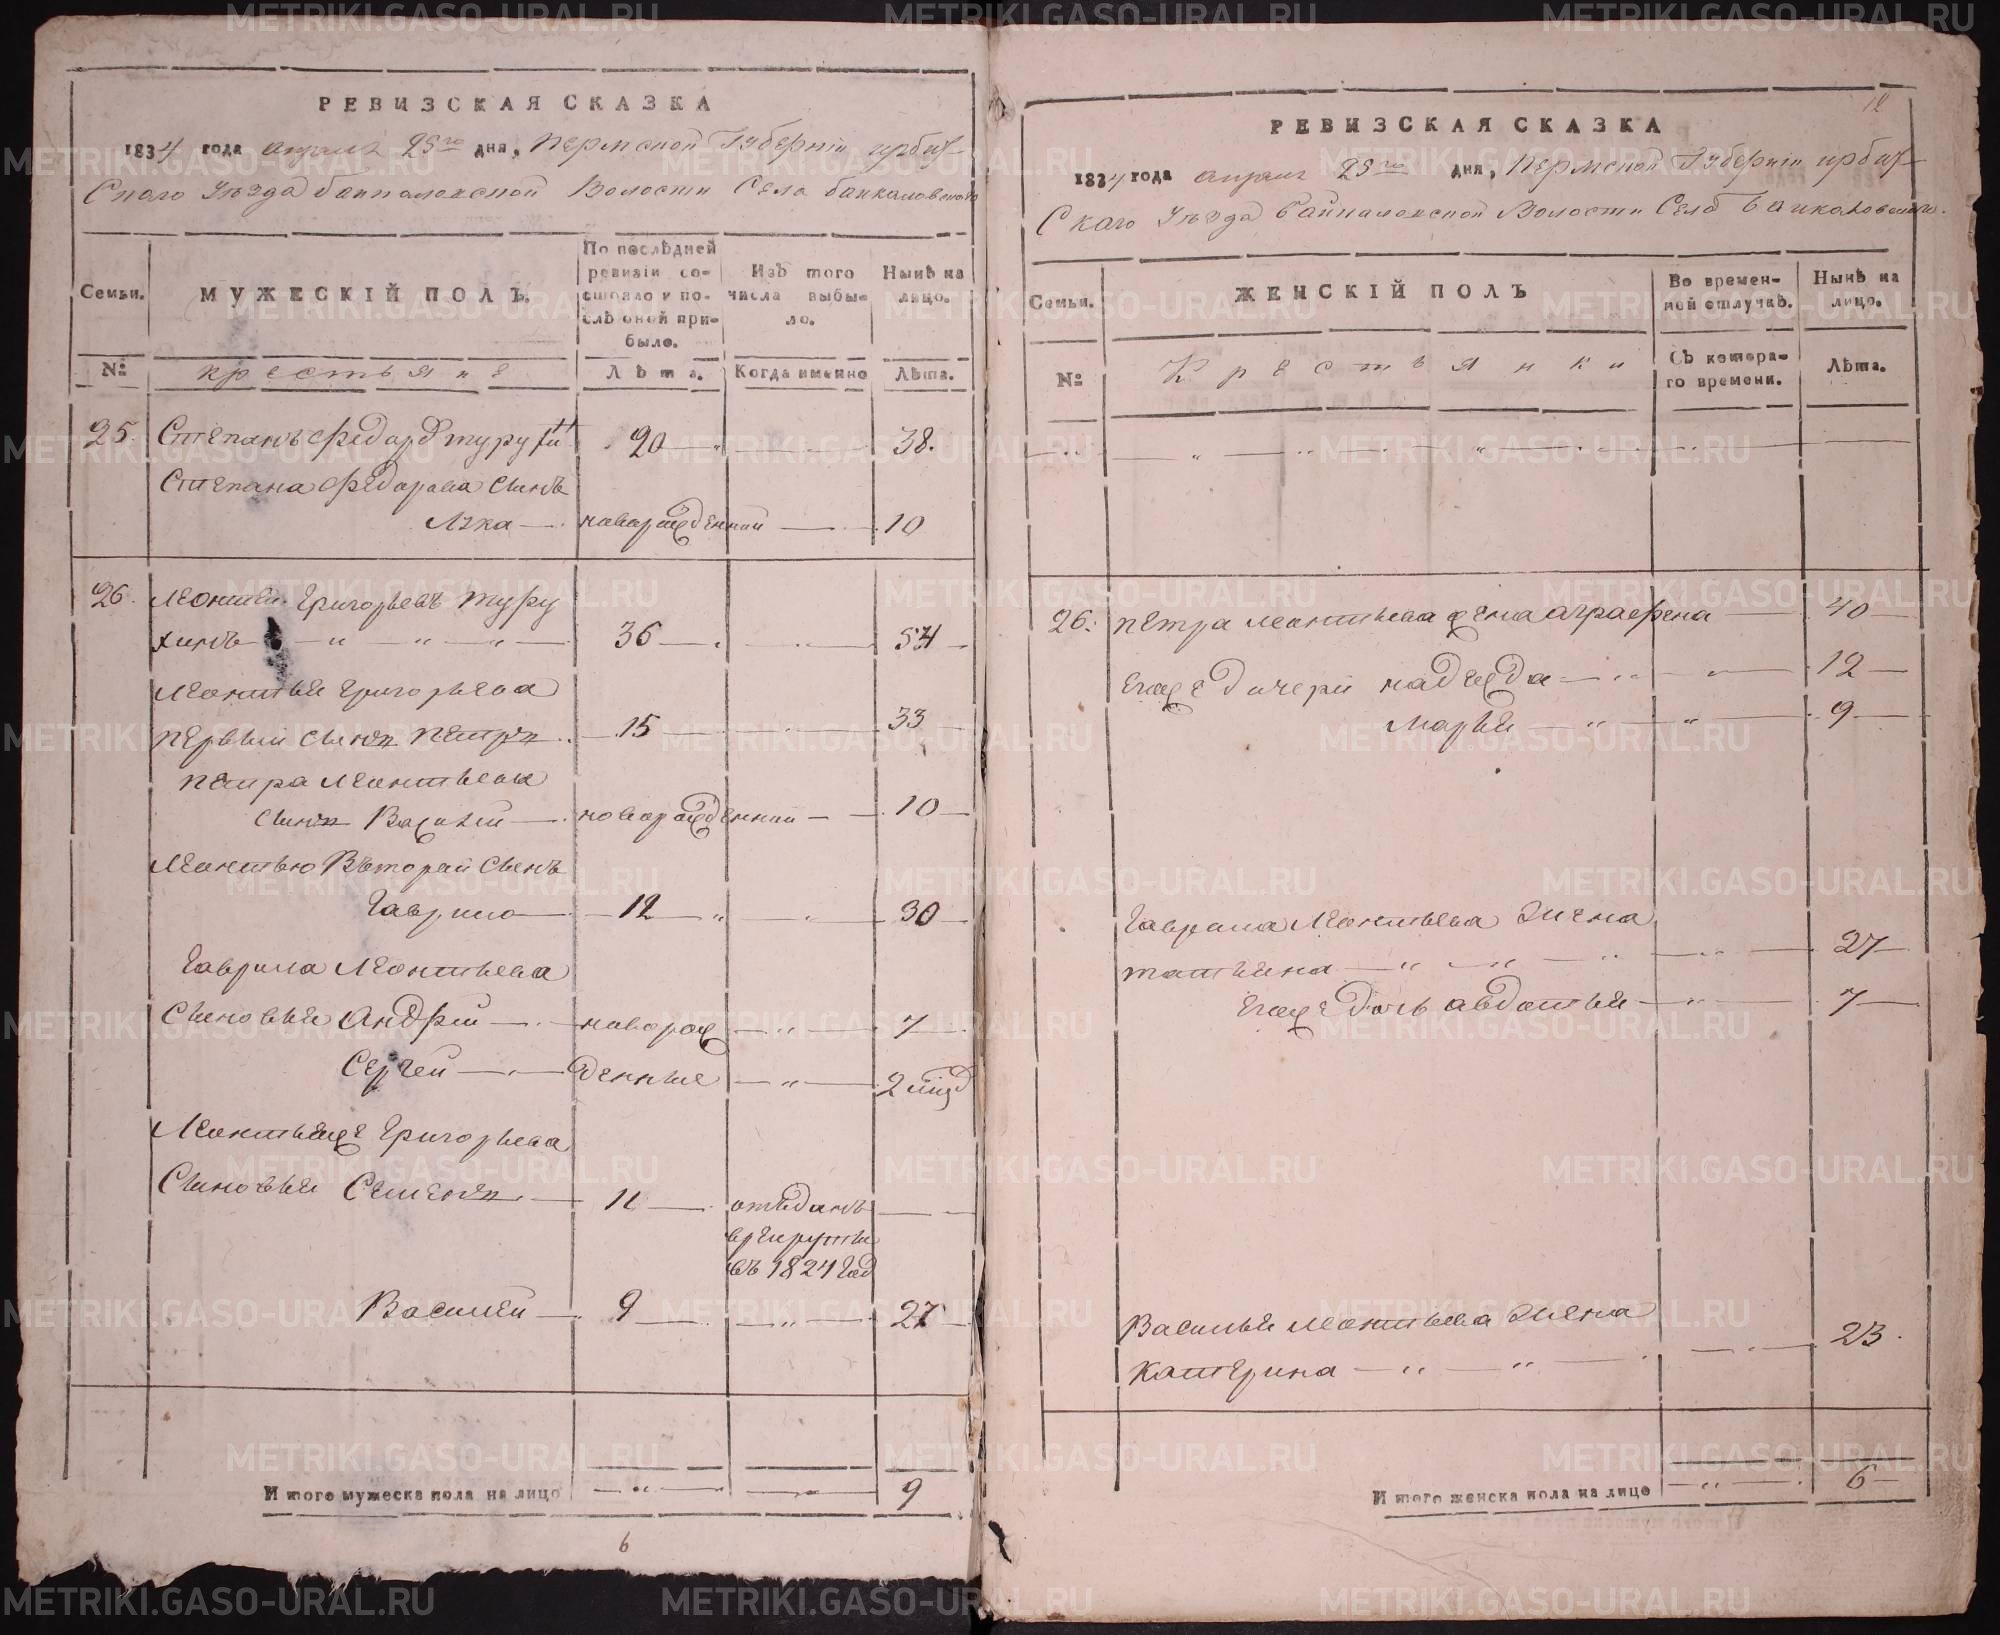 РЕВИЗСКАЯ СКАЗКА
1834 года апреля 25го дня, Пермской Губернiи ирбит
Скаго Уѣзда байкаловской Волости Села байкаловскаго
Семьи.
МУЖЕСКIЙ ПОЛЪ.
По послѣдней ревизiи со-
стояло и по-
слѣ оной при-
было.
Изъ того
числа выбы-
ло.
Нынѣ на
лицо.
№
крестьяне
Лѣта.
Когда именно
Лѣта.
25. Степанъ Федоров туру 20 38.
Степана Федорова Сынъ
новарожденной 10
26. Леонтей Григорьевъ туру
хинъ 36 54
Леонтья Григорьева
первый сынъ петръ 15 33
петра Леонтьева
сынъ Василей новарожденной 10
Леонтью Вторай Сынъ
Гаврило 12 30
Гаврила Леонтьева
Сыновьи Андрей новорож 7
Сергей денные 2
Леонтьяже Григорьева
Сыновьи Семенъ 11 отъданъ
врекруты
въ 1824 год
Василей 9 27
Итого мужеска пола на лицо 9
6
12
РЕВИЗСКАЯ СКАЗКА
1834 года апреля 25го дня, Пермской Губернiи ирбит
Скаго Уѣзда байкаловской Волости Села байкаловскаго.
Семьи.
ЖЕНСКIЙ ПОЛЪ
Во времен-
ной отлучкѣ.
Нынѣ на
лицо.
№
Крестьянки
Съ котора-
го времени.
Лѣта.
26. петра Леонтьева жена аграфена 40
егоже дочери надежда 12
марья 9
Гаврила Леонтьева жена
татьяна 27
егоже дочь авдотья 7
Василья Леонтьева жена
катерина 23.
Итого женска пола на лицо 6
METRIKI.GASO-URAL.RU